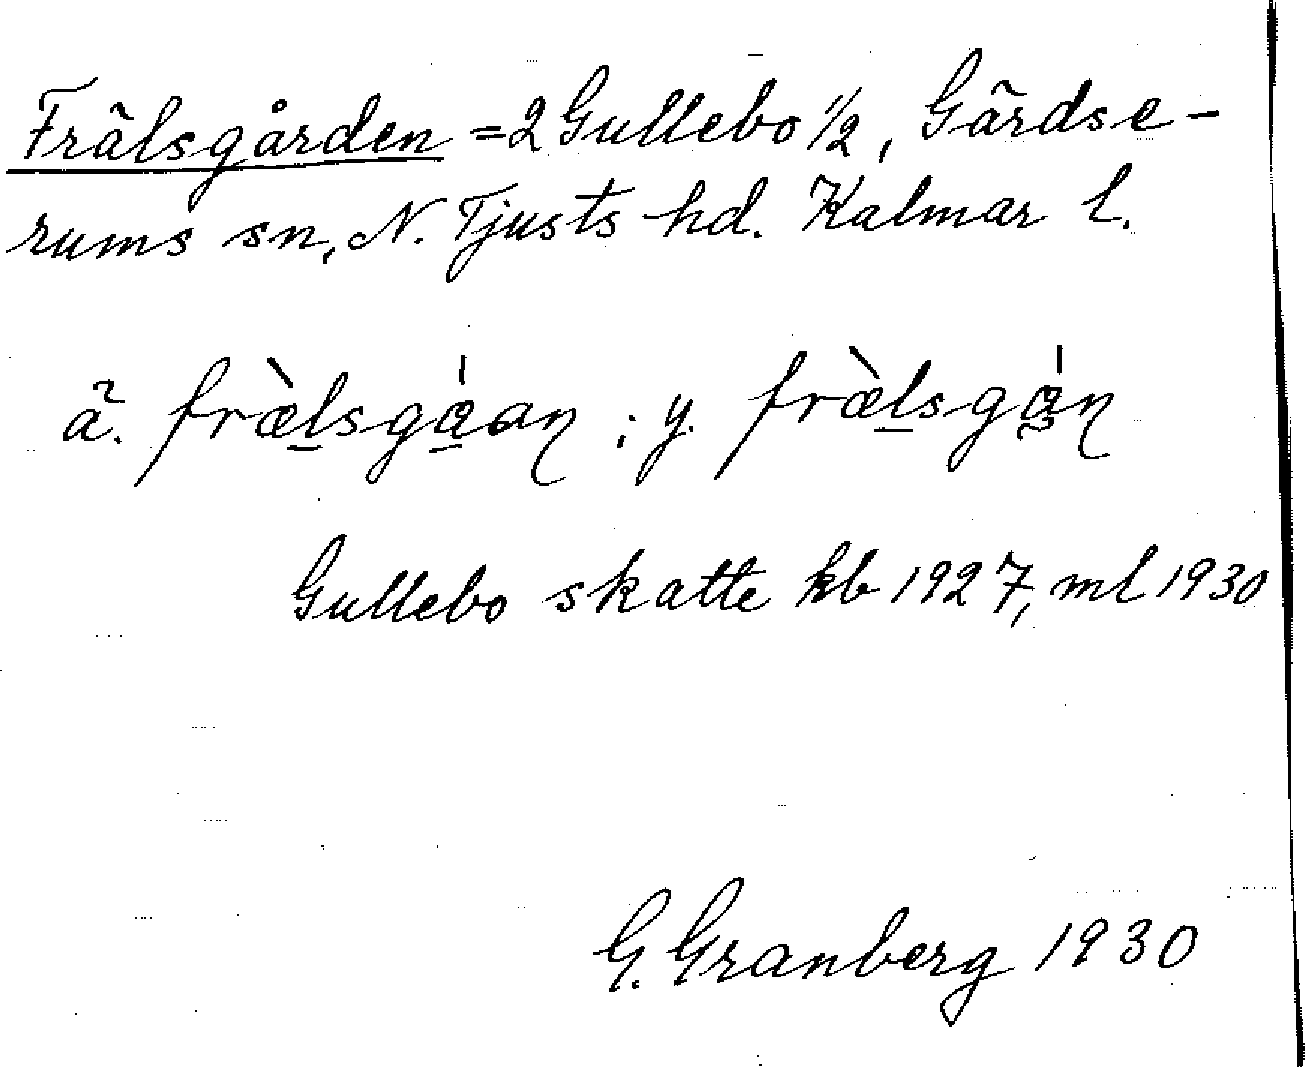 Frälsgården = 2 Gullebo 1/2, Gärdse-
rums sn, N. Tjusts hd. Kalmar l.
ä. fræ̀lsgǻan ; y. fræ̀lsgǻn
Gullebo skatte kb 1927, ml 1930
G. Granberg 1930